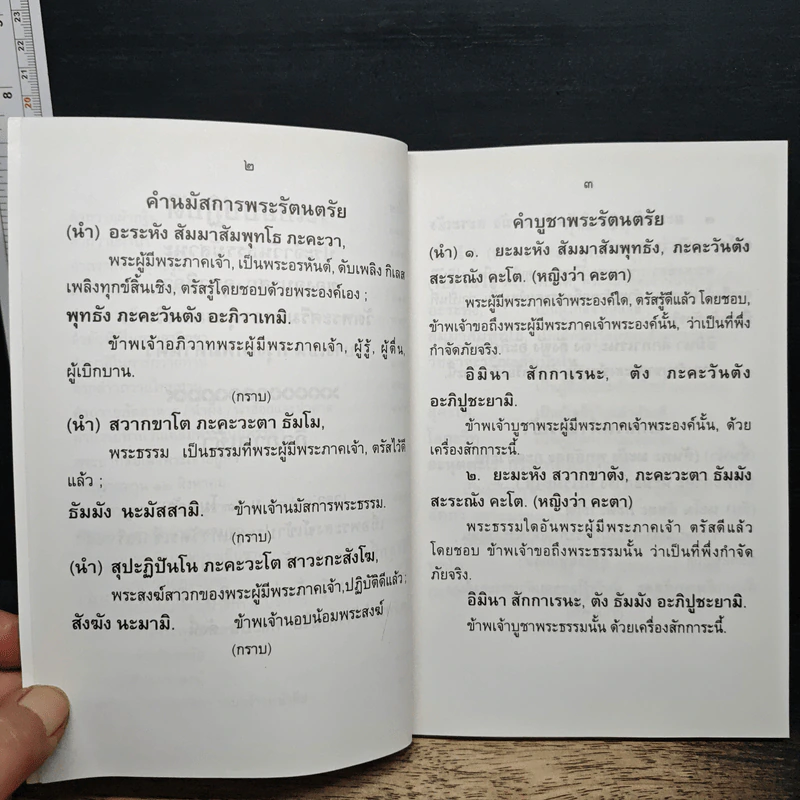 ๒
คำนมัสการพระรัตนตรัย
(นำ) อะระหัง สัมมาสัมพุทโธ ภะคะวา,
พระผู้มีพระภาคเจ้า, เป็นพระอรหันต์, ดับเพลิง กิเลส
เพลิงทุกข์สิ้นเชิง, ตรัสรู้โดยชอบด้วยพระองค์เอง ;
พุทธัง ภะคะวันตัง อะภิวาเทมิ.
ข้าพเจ้าอภิวาทพระผู้มีพระภาคเจ้า, ผู้รู้, ผู้ตื่น,
ผู้เบิกบาน.
(กราบ)
(นำ) สวากขาโต ภะคะวะตา ธัมโม,
พระธรรม เป็นธรรมที่พระผู้มีพระภาคเจ้า, ตรัสไว้ดี
แล้ว ;
ธัมมัง นะมัสสามิ. ข้าพเจ้านมัสการพระธรรม.
(กราบ)
(นำ) สุปะฏิปันโน ภะคะวะโต สาวะกะสังโฆ,
พระสงฆ์สาวกของพระผู้มีพระภาคเจ้า,ปฏิบัติดีแล้ว ;
สังฆัง นะมามิ. ข้าพเจ้านอบน้อมพระสงฆ์
(กราบ)
๓
คำบูชาพระรัตนตรัย
(นำ) ๑. ยะมะหัง สัมมาสัมพุทธัง, ภะคะวันตัง
สะระณัง คะโต. (หญิงว่า คะตา)
พระผู้มีพระภาคเจ้าพระองค์ใด, ตรัสรู้ดีแล้ว โดยชอบ,
ข้าพเจ้าขอถึงพระผู้มีพระภาคเจ้าพระองค์นั้น, ว่าเป็นที่พึ่ง
กำจัดภัยจริง.
อิมินา สักกาเรนะ, ตัง ภะคะวันตัง
อะภิปูชะยามิ.
ข้าพเจ้าบูชาพระผู้มีพระภาคเจ้าพระองค์นั้น, ด้วย
เครื่องสักการะนี้.
๒. ยะมะหัง สวากขาตัง, ภะคะวะตา ธัมมัง
สะระณัง คะโต. (หญิงว่า คะตา)
พระธรรมใดอันพระผู้มีพระภาคเจ้า ตรัสดีแล้ว
โดยชอบ ข้าพเจ้าขอถึงพระธรรมนั้น ว่าเป็นที่พึ่งกำจัด
ภัยจริง.
อิมินา สักกาเรนะ, ตัง ธัมมัง อะภิปูชะยามิ.
ข้าพเจ้าบูชาพระธรรมนั้น ด้วยเครื่องสักการะนี้.